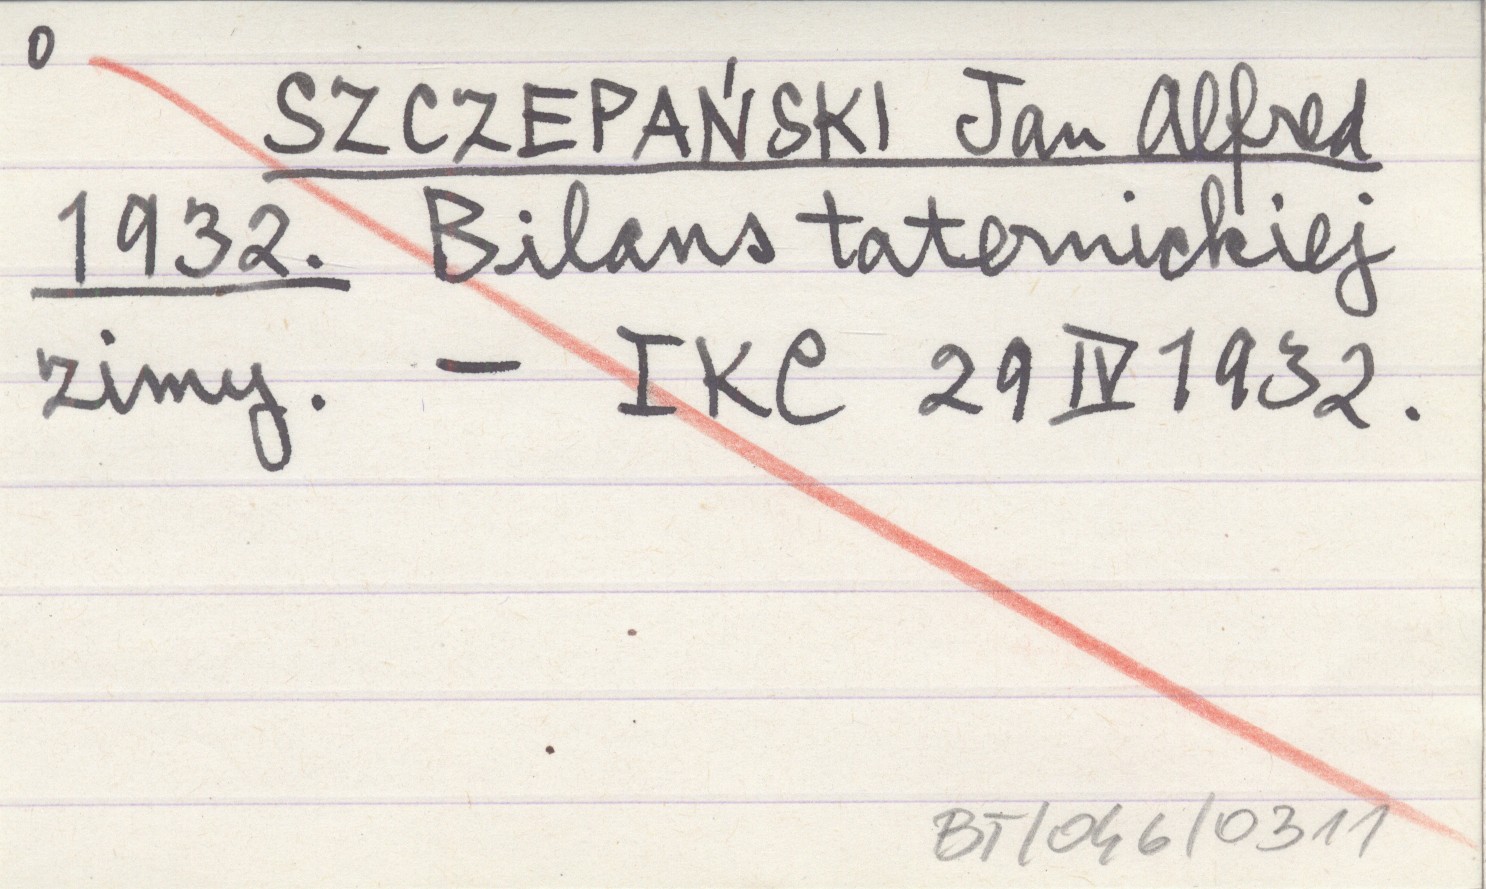 0
SZCZEPAŃSKI Jan Alfred
1932. Bilans taternickiej
zimy. – IKC 29 IV 1932.
BT/046/0311